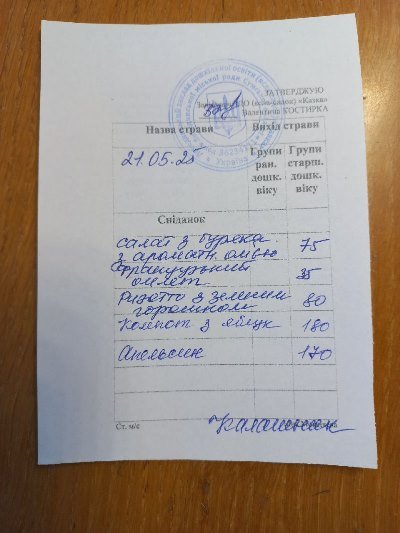 ЗАТВЕРДЖУЮ
ЗДО (ясла-садок) «Казка»
Валентина КОСТИРКА
Назва страви Вихід страви
21.05.25
Групи ран. дошк. віку
Групи старш. дошк. віку
Сніданок
салат з буряка
з аромат. олією 75
Французький
омлет 35
Ризотто з зеленим
горошком 80
Компот з яблук 180
Апельсин 170
Ст. м/с